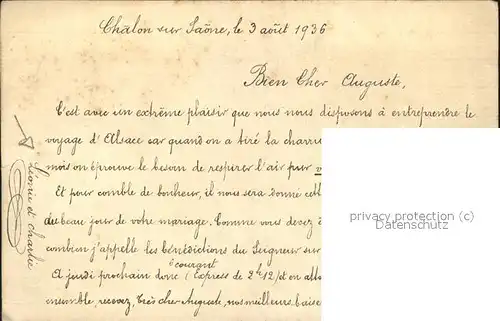 Châlon sur Saône, le 3 août 1936
Bien Cher Auguste,
C'est avec un extrême plaisir que nous nous disposons à entreprendre le
voyage d'Alsace car quand on a tiré la charru
mois on éprouve le besoin de respirer l'air pur
Et pour comble de bonheur, il nous sera donné cett
du beau jour de votre mariage. Comme vous devez
combien j'appelle les bénédictions du Seigneur sur
A jeudi prochain donc (Express de 2h12) et en atte
ensemble, recevez, très cher Auguste, nos meilleurs baise
Léonie et Charlie
privacy protection (c)
www.oldthing.de